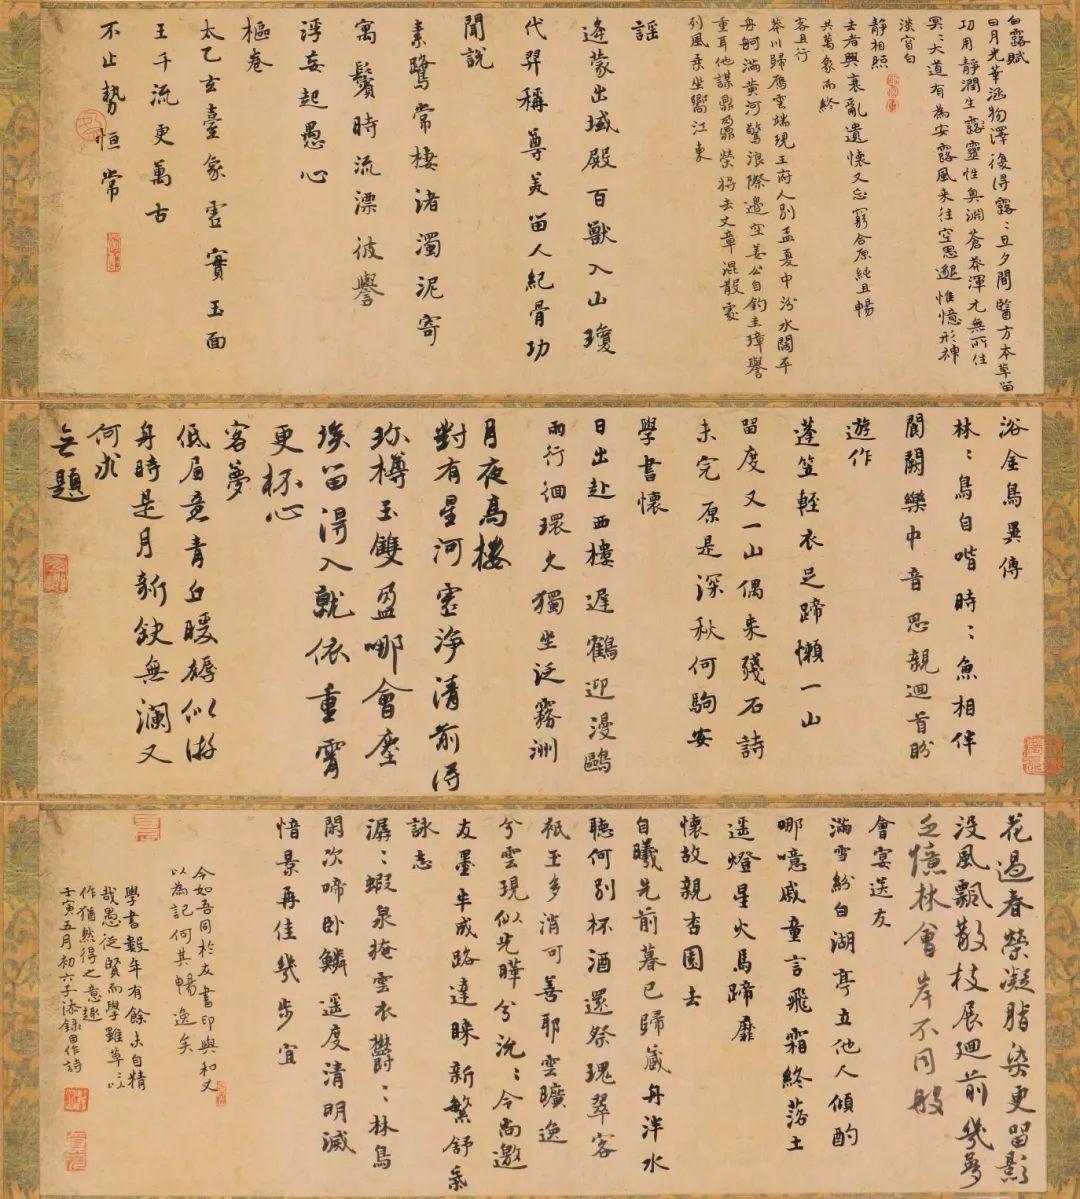 白露賦
日月光華涵物澤復得露〻旦夕間醫方本草留
功用靜潤生露靈性與淵蒼莽渾亢無所住
冥〻大道有為安露風来往空思邈惟憶形神
淡宵白
靜相照
去者興衰亂遺懷又忘窮合原純且暢
共萬象而終
客且行
莽川歸鴈雲端現王府人別孟夏中汾水闊平
舟舸滿黃河驚浪際邊空姜公自釣圭璋譽
重耳他謀鼎鼐榮将去文章混散霙
列風乘坐嚮江東
謡
逄蒙出域殿百獸入山瓊
代羿稱尊美留人紀骨功
聞説
素鷺常棲渚濁泥寄
寓鬢時流漂彼譽
浮妄起愚心
樞卷
太乙玄臺象雲實玉面
王千流更萬古
不止勢恒常
浴金鳥異傳
林〻鳥自喈時〻魚相伴
閬闕樂中音思親迴首盼
遊作
蓬笠輕衣足蹄懶一山
留度又一山偶来殘石詩
未完原是深秋何駒安
學書懷
日出赴西樓遲鶴迎漫鷗
雨行徊環久獨坐泛霧洲
月夜高樓
對有星河雲淨清前得
珎樽玉雙盈哪會塵
埃留得入就依重霄
更杯心
客夢
低眉意青丘暖褥似游
舟時是月新缺無澜又
何求
無題
花過春榮凝脂染更留影
没風飄散枝展廻前幾夢
之憶林會岸不同般
會宴送友
滿雪紛白湖亭立他人傾酌
哪噫戚童言飛霜終落土
遥燈星火馬蹄靡
懷故親杏園去
自曦先前暮已歸葳舟泮水
聴何別杯酒還祭瑰翠客
祇玉多消可善耶雲曠逸
兮雲現似光曄兮沈〻今尚邀
友墨年威路達睐新繁舒氣
詠志
潺〻蝦泉掩雲衣欝〻林鳥
開次啼卧鱗遥度清明滅
惜景再佳幾步宜
今如吾同於友書印與和又
以為記何其暢逸矣
學書數年有餘未自精
哉愚従賢而學雖草〻以
作猶然得之意趣
壬寅五月初六子添録自作詩